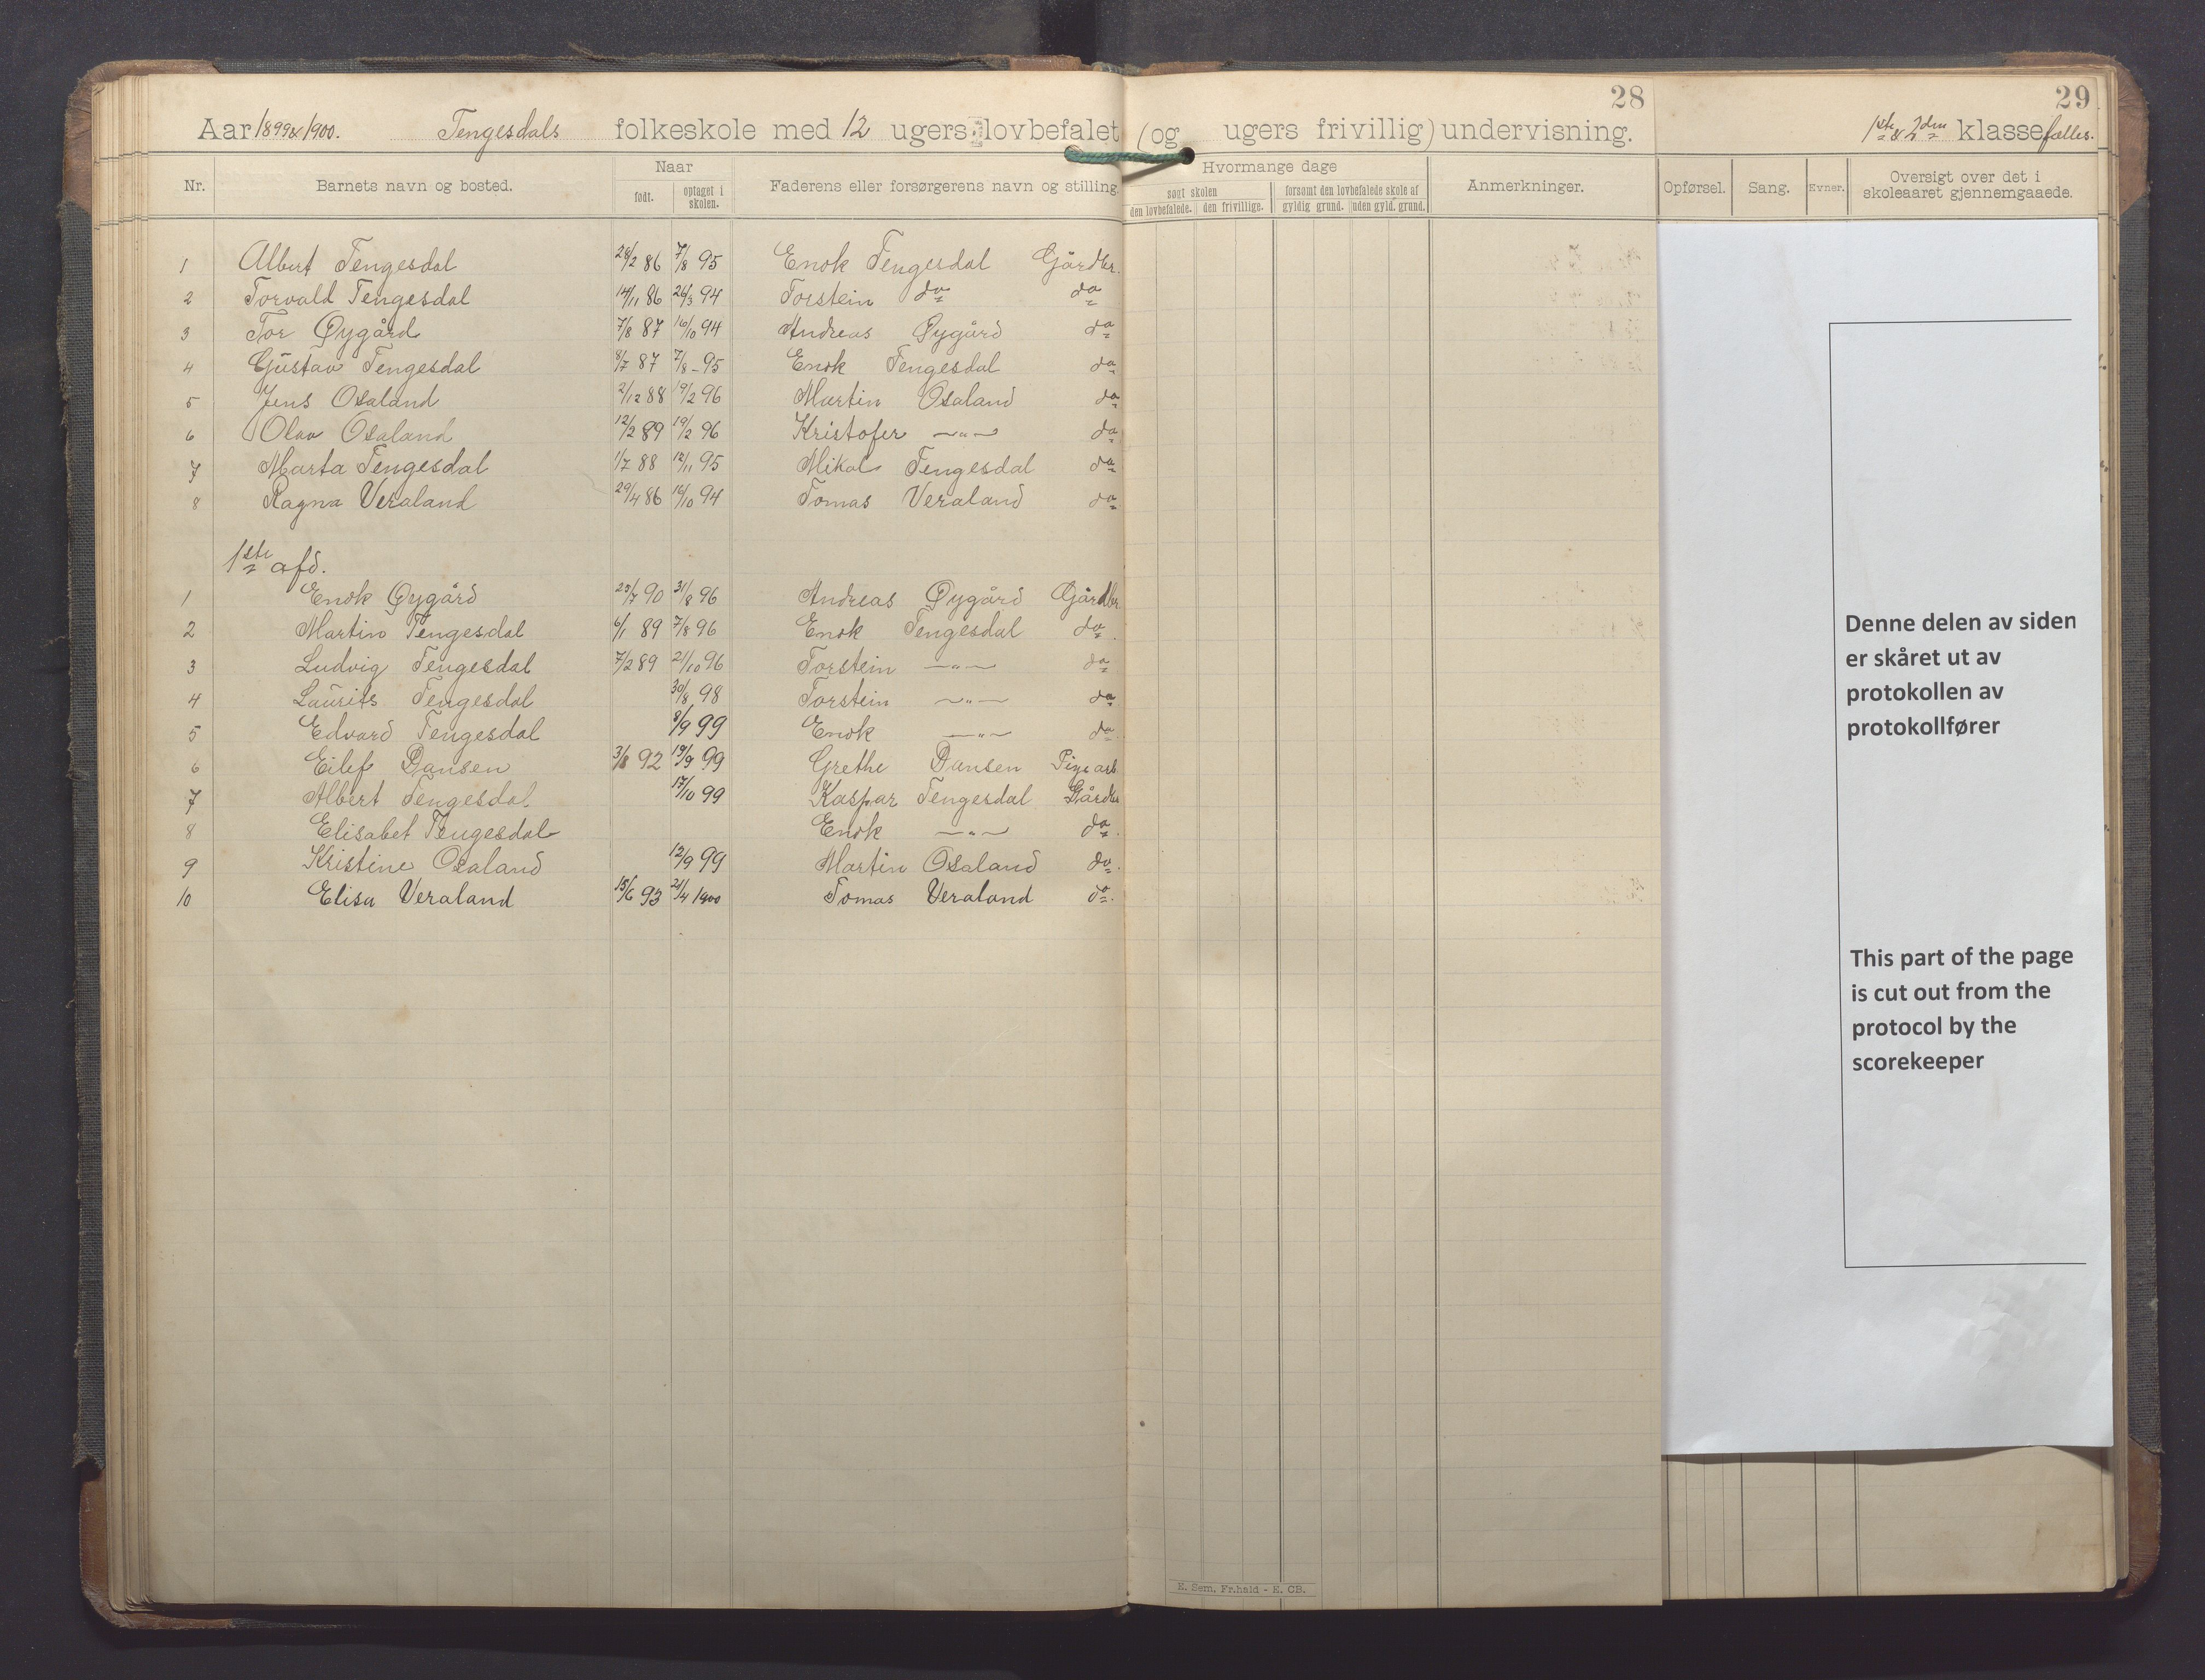 28
29
Aar 1899 & 1900. Tengesdals folkeskole med 12 ugers lovbefalet (og ugers frivillig) undervisning. 1ste & 2den klasse fælles.
Nr. Barnets navn og bosted. Naar Faderens eller forsørgerens navn og stilling. Hvormange dage Anmerkninger. Opførsel. Sang. Evner. Oversigt over det i skoleaaret gjennemgaaede.
født. optaget i skolen. søgt skolen forsømt den lovbefalede skole af
den lovbefalede. den frivillige. gyldig grund. uden gyld. grund.
1 Albert Tengesdal 28/2 86 7/8 95 Enok Tengesdal Gårdbr.
2 Torvald Tengesdal 14/11 86 26/3 94 Torstein do do
3 Tor Øygård 7/8 87 16/10 94 Andreas Øygård do
4 Gustav Tengesdal 8/7 87 7/8 - 95 Enok Tengesdal do
5 Jens Osaland 2/12 88 19/2 96 Martin Osaland do
6 Olav Osaland 12/2 89 19/2 96 Kristofer —"— do
7 Marta Tengesdal 1/7 88 12/11 95 Mikal Tengesdal do
8 Ragna Veraland 29/4 86 16/10 94 Tomas Veraland do
1ste afd.
1 Enok Øygård 25/7 90 31/8 96 Andreas Øygård Gårdbr
2 Martin Tengesdal 6/1 89 7/8 96 Enok Tengesdal do.
3 Ludvig Tengesdal 7/2 89 21/10 96 Torstein —"— do
4 Laurits Tengesdal 30/8 98 Torstein —"— do
5 Edvard Tengesdal 8/9 99 Enok —"— do
6 Eilef Dansen 3/8 92 19/9 99 Grethe Dansen Pige arb
7 Albert Tengesdal 17/10 99 Kaspar Tengesdal Gårdbr
8 Elisabet Tengesdal Enok —"— do.
9 Kristine Osaland 12/9 99 Martin Osaland do.
10 Elisa Veraland 15/6 93 21/4 1900 Tomas Veraland do.
Denne delen av siden
er skåret ut av
protokollen av
protokollfører
This part of the page
is cut out from the
protocol by the
scorekeeper
E. Sem. Fr.hald - E. CB.